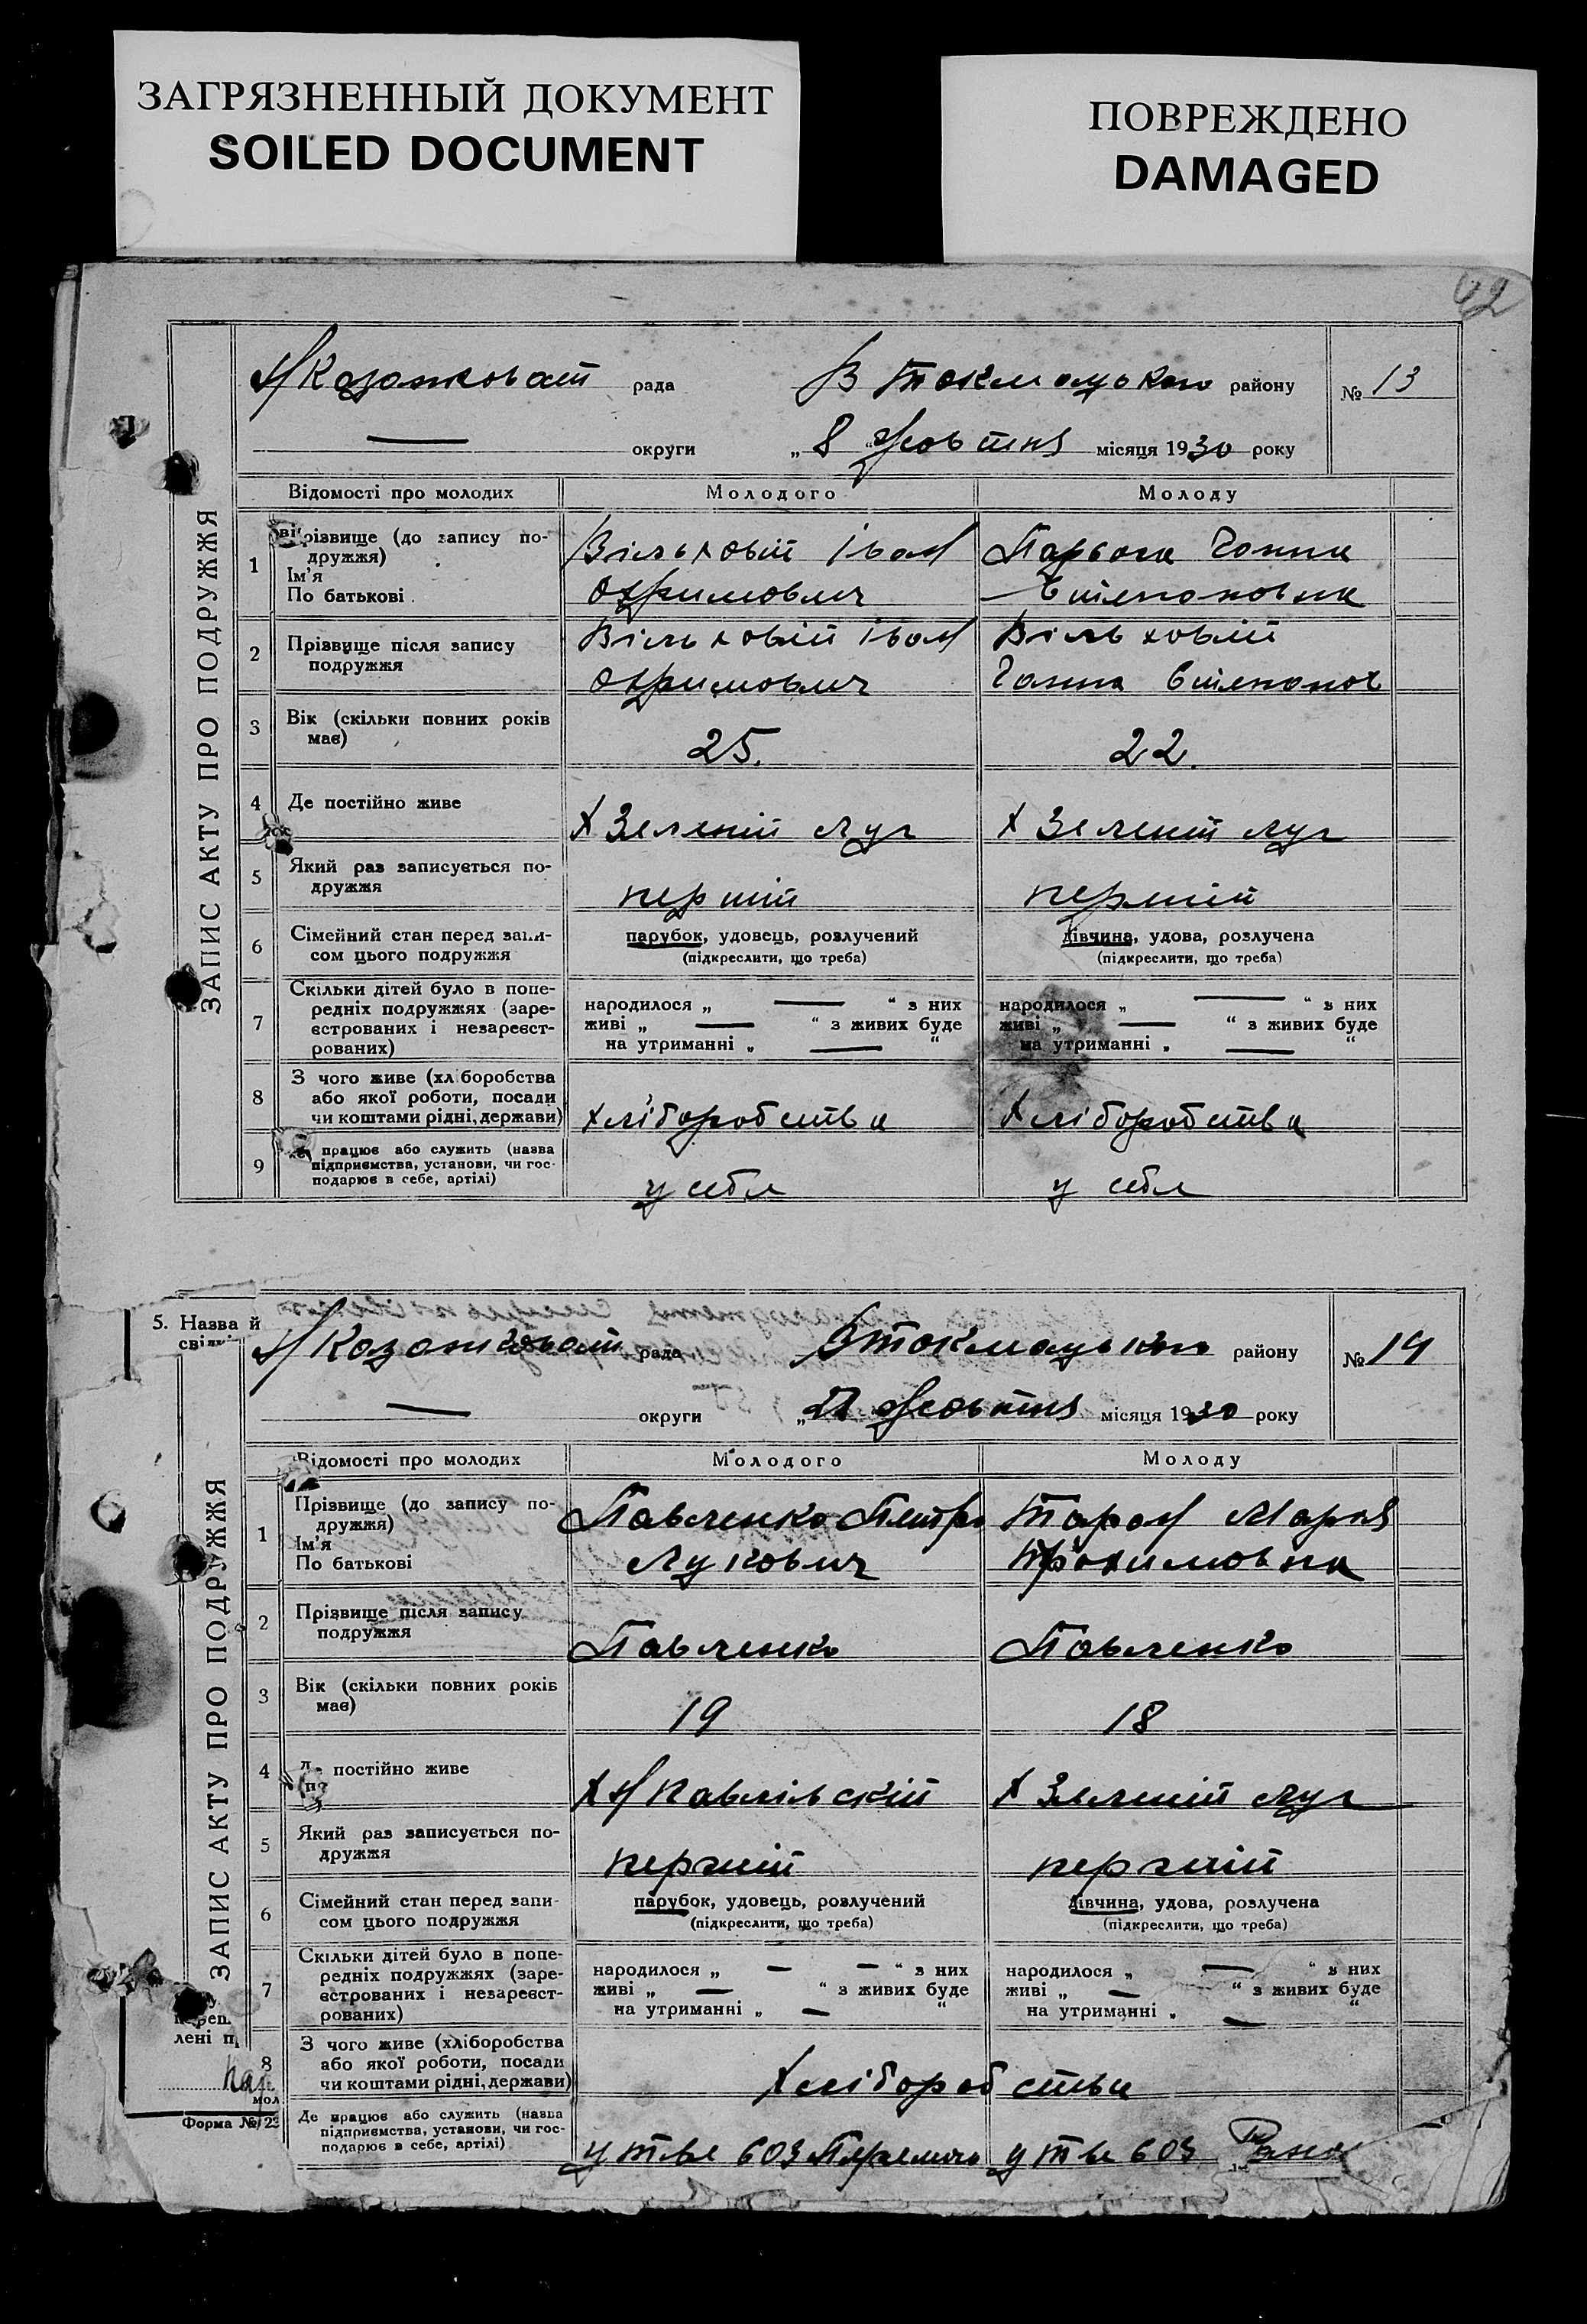 ЗАГРЯЗНЕННЫЙ ДОКУМЕНТ
SOILED DOCUMENT
ПОВРЕЖДЕНО
DAMAGED
ЗАПИС АКТУ ПРО ПОДРУЖЖЯ
Н Казанковат рада В Токмацького району № 13
— округи „ 8 “ Жовтня місяця 1930 року
Відомості про молодих Молодого Молоду
1 Прізвище (до запису по- Вільховій Іван Ганна
дружжя)
Ім'я
По батькові Охримович
2 Прізвище після запису Вільховій Іван Вільховій
подружжя Охримович Ганна
3 Вік (скільки повних років 25. 22.
має)
4 Де постійно живе Х Зеленій Луг Х Зеленій Луг
5 Який раз записується по- перший перший
дружжя
6 Сімейний стан перед запи- парубок, удовець, розлучений дівчина, удова, розлучена
сом цього подружжя (підкреслити, що треба) (підкреслити, що треба)
7 Скільки дітей було в попе- народилося „ — “ з них народилося „ — “ з них
редніх подружжях (заре- живі „ — “ з живих буде живі „ — “ з живих буде
єстрованих і незареєст- на утриманні „ — “ на утриманні „ — “
рованих)
8 З чого живе (хліборобства Хліборобства Хліборобства
або якої роботи, посади
чи коштами рідні, держави)
9 працює або служить (назва у себе у себе
підприємства, установи, чи гос-
подарює в себе, артілі)
5. Назва й
ЗАПИС АКТУ ПРО ПОДРУЖЖЯ
Н Казанковат рада В Токмацького району № 14
— округи „ 21 Жовтня місяця 1930 року
Відомості про молодих Молодого Молоду
1 Прізвище (до запису по- Павленко Петро Таран Марія
дружжя)
Ім'я
По батькові Лукович Трохимовна
2 Прізвище після запису Павленко Павленко
подружжя
3 Вік (скільки повних років 19 18
має)
4 постійно живе Х Н Павлівській Х Зеленій Луг
5 Який раз записується по- перший перший
дружжя
6 Сімейний стан перед запи- парубок, удовець, розлучений дівчина, удова, розлучена
сом цього подружжя (підкреслити, що треба) (підкреслити, що треба)
7 Скільки дітей було в попе- народилося „ — — “ з них народилося „ — “ з них
редніх подружжях (заре- живі „ — “ з живих буде живі „ — “ з живих буде
єстрованих і незареєст- на утриманні „ — “ на утриманні „ — “
рованих)
лені п
8 З чого живе (хліборобства Хліборобства
або якої роботи, посади
чи коштами рідні, держави)
мол
Форма № 23
Де працює або служить (назва у т-ве у т-ве
підприємства, установи, чи гос-
подарює в себе, артілі)